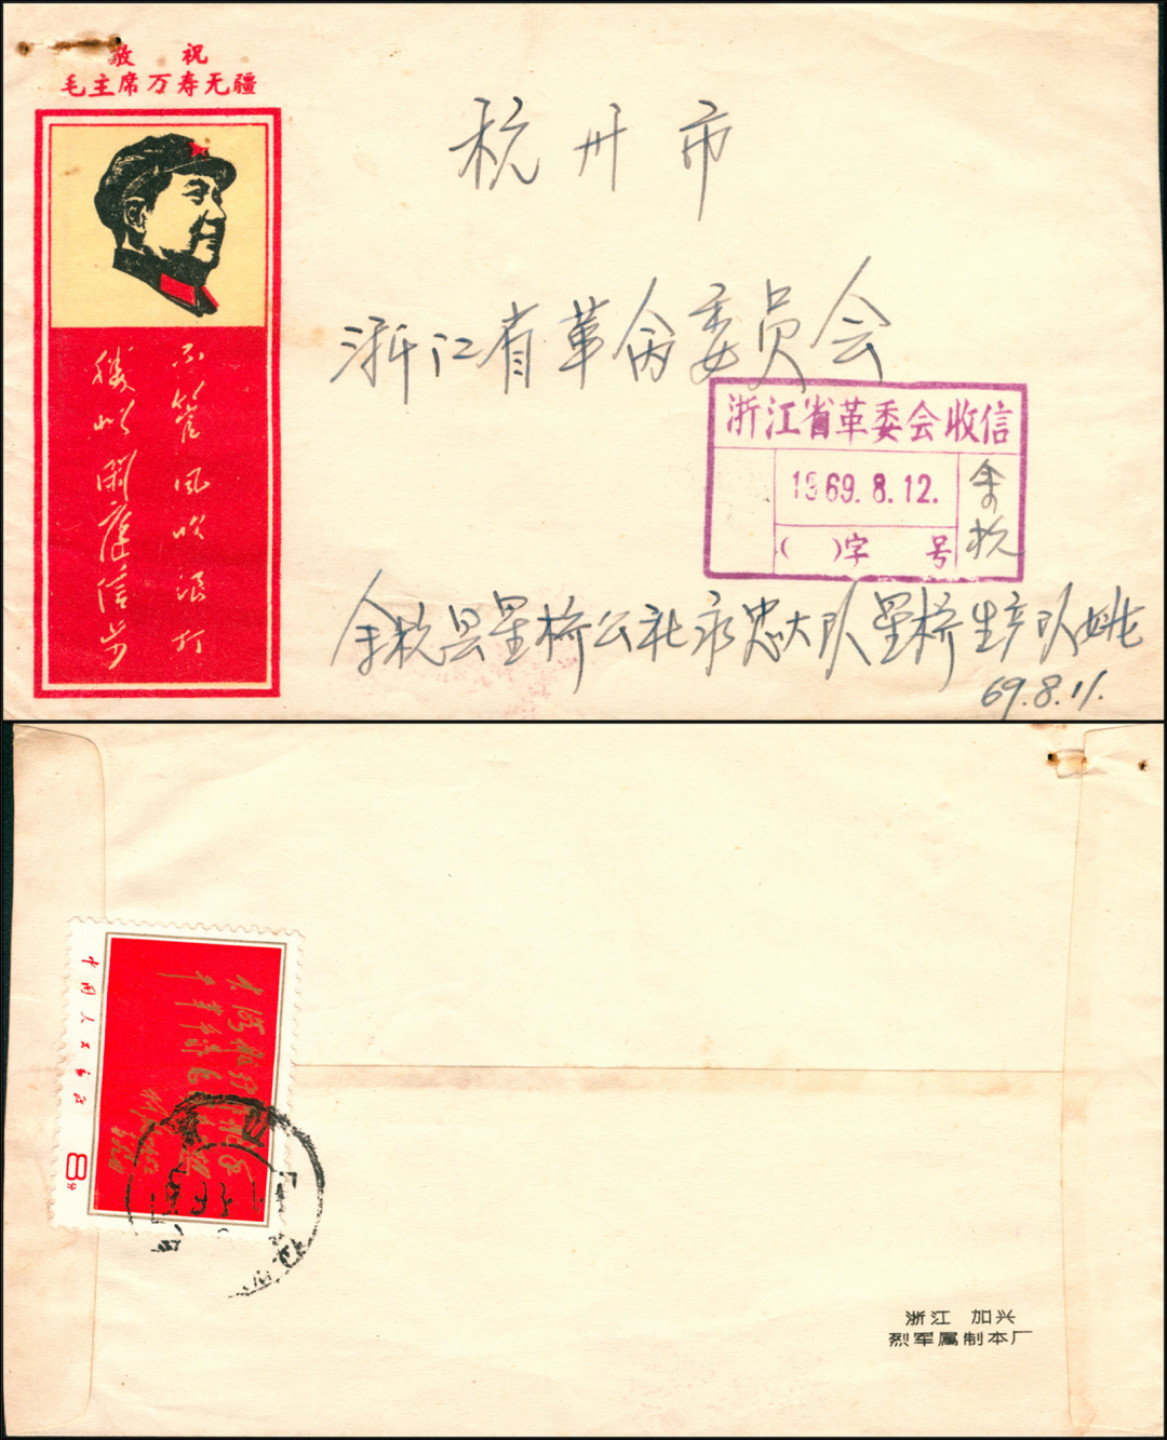 敬 祝
毛主席万寿无疆
不管风吹浪打
胜似闲庭信步
杭州市
浙江省革命委员会
浙江省革委会收信
1969.8.12.
余杭
( )字 号
余杭县星桥公社永忠大队星桥生产队姚
69.8.11.
中国人民邮政
8分
大海航行靠舵手
干革命靠毛泽东思想
浙江 加兴
烈军属制本厂